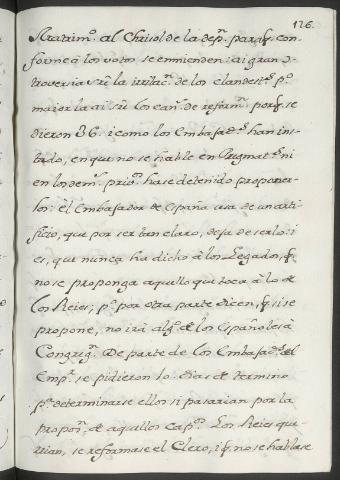 126.
tratrim.º al Chrisol de la dep.n para q. con-
forme a los votos se enmienden: ai gran c-
troversia s.re la irritac.n de los clandest.s p.º
maior la ai s.re los can.s de reform.n porq. se
dieron 36. i como los Embajad.s han ins-
tado, en que no se hable en Dogmat.s ni
en los dem.s prim.º hase detenido proponer-
los: el Embajador de España usa de un arti-
ficio, que por ser tan claro, deja de serlo: i
es, que nunca ha dicho à los Legados, q.
no se proponga aquello que toca à lo de
los Reies; p.º por otra parte dicen, q. si se
propone, no irà alg.º de los Españoles à
Congrig.n De parte de los Embajad.s del
Emp.r se pidieron 10. dias de termino
p.ª determinarse ellos si pasarian por la
propos.n de aquellos cap.os Los Reies que-
rian, se reformase el Clero, i q. no se hablase